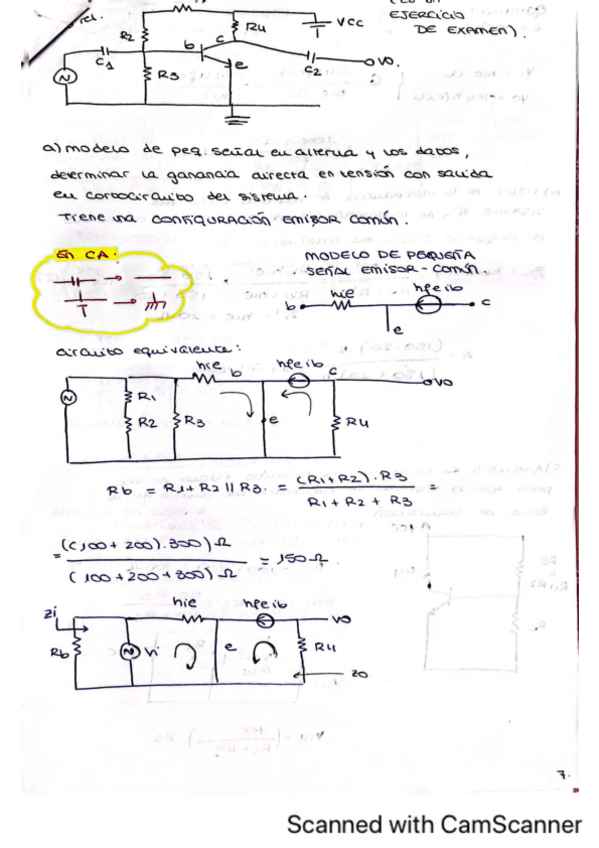 (
EJERCICIO
DE EXAMEN).
R2
R4
VCC
C1
b
c
e
R3
C2
VO.
a) modelo de peq. señal en alterna y los datos,
determinar la ganancia directa en tensión con salida
en cortocircuito del sistema.
Tiene una CONFIGURACIÓN EMISOR COMÚN.
En CA:
MODELO DE PEQUEÑA
SEÑAL EMISOR-COMÚN.
b
hie
hfe ib
c
e
circuito equivalente:
hie
b
hfe ib
c
VO
R1
R2
R3
e
R4
Rb = R1+R2 || R3. = (R1+R2).R3 / R1+R2+R3 =
= ((100+200).300)Ω / (100+200+300)Ω = 150Ω.
zi
hie
hfe ib
VO
Rb
Vi
e
R4
zo
7.
Scanned with CamScanner